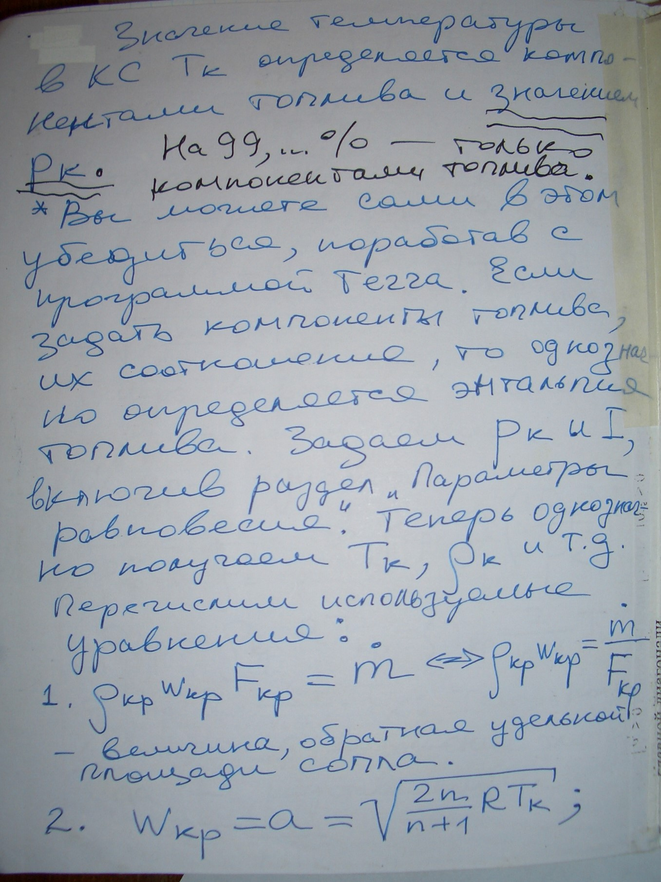 Значение температуры
в КС Tк определяется компо-
нентами топлива и значением
Pк.
На 99,...% — только
компонентами топлива.
* Вы можете сами в этом
убедиться, поработав с
программой Терра. Если
задать компоненты топлива,
их соотношение, то однознач
но определяется энтальпия
топлива. Задаем pк и I,
включив раздел „Параметры
равновесия". Теперь однознач
но получаем Tк, ρк и т.д.
Перечислим используемые
уравнения:
1. ρкр wкр Fкр = ṁ <=> ρкр wкр = ṁ/Fкр
– величина, обратная удельной
площади сопла.
2. Wкр = a = √(2n/(n+1) RTк);